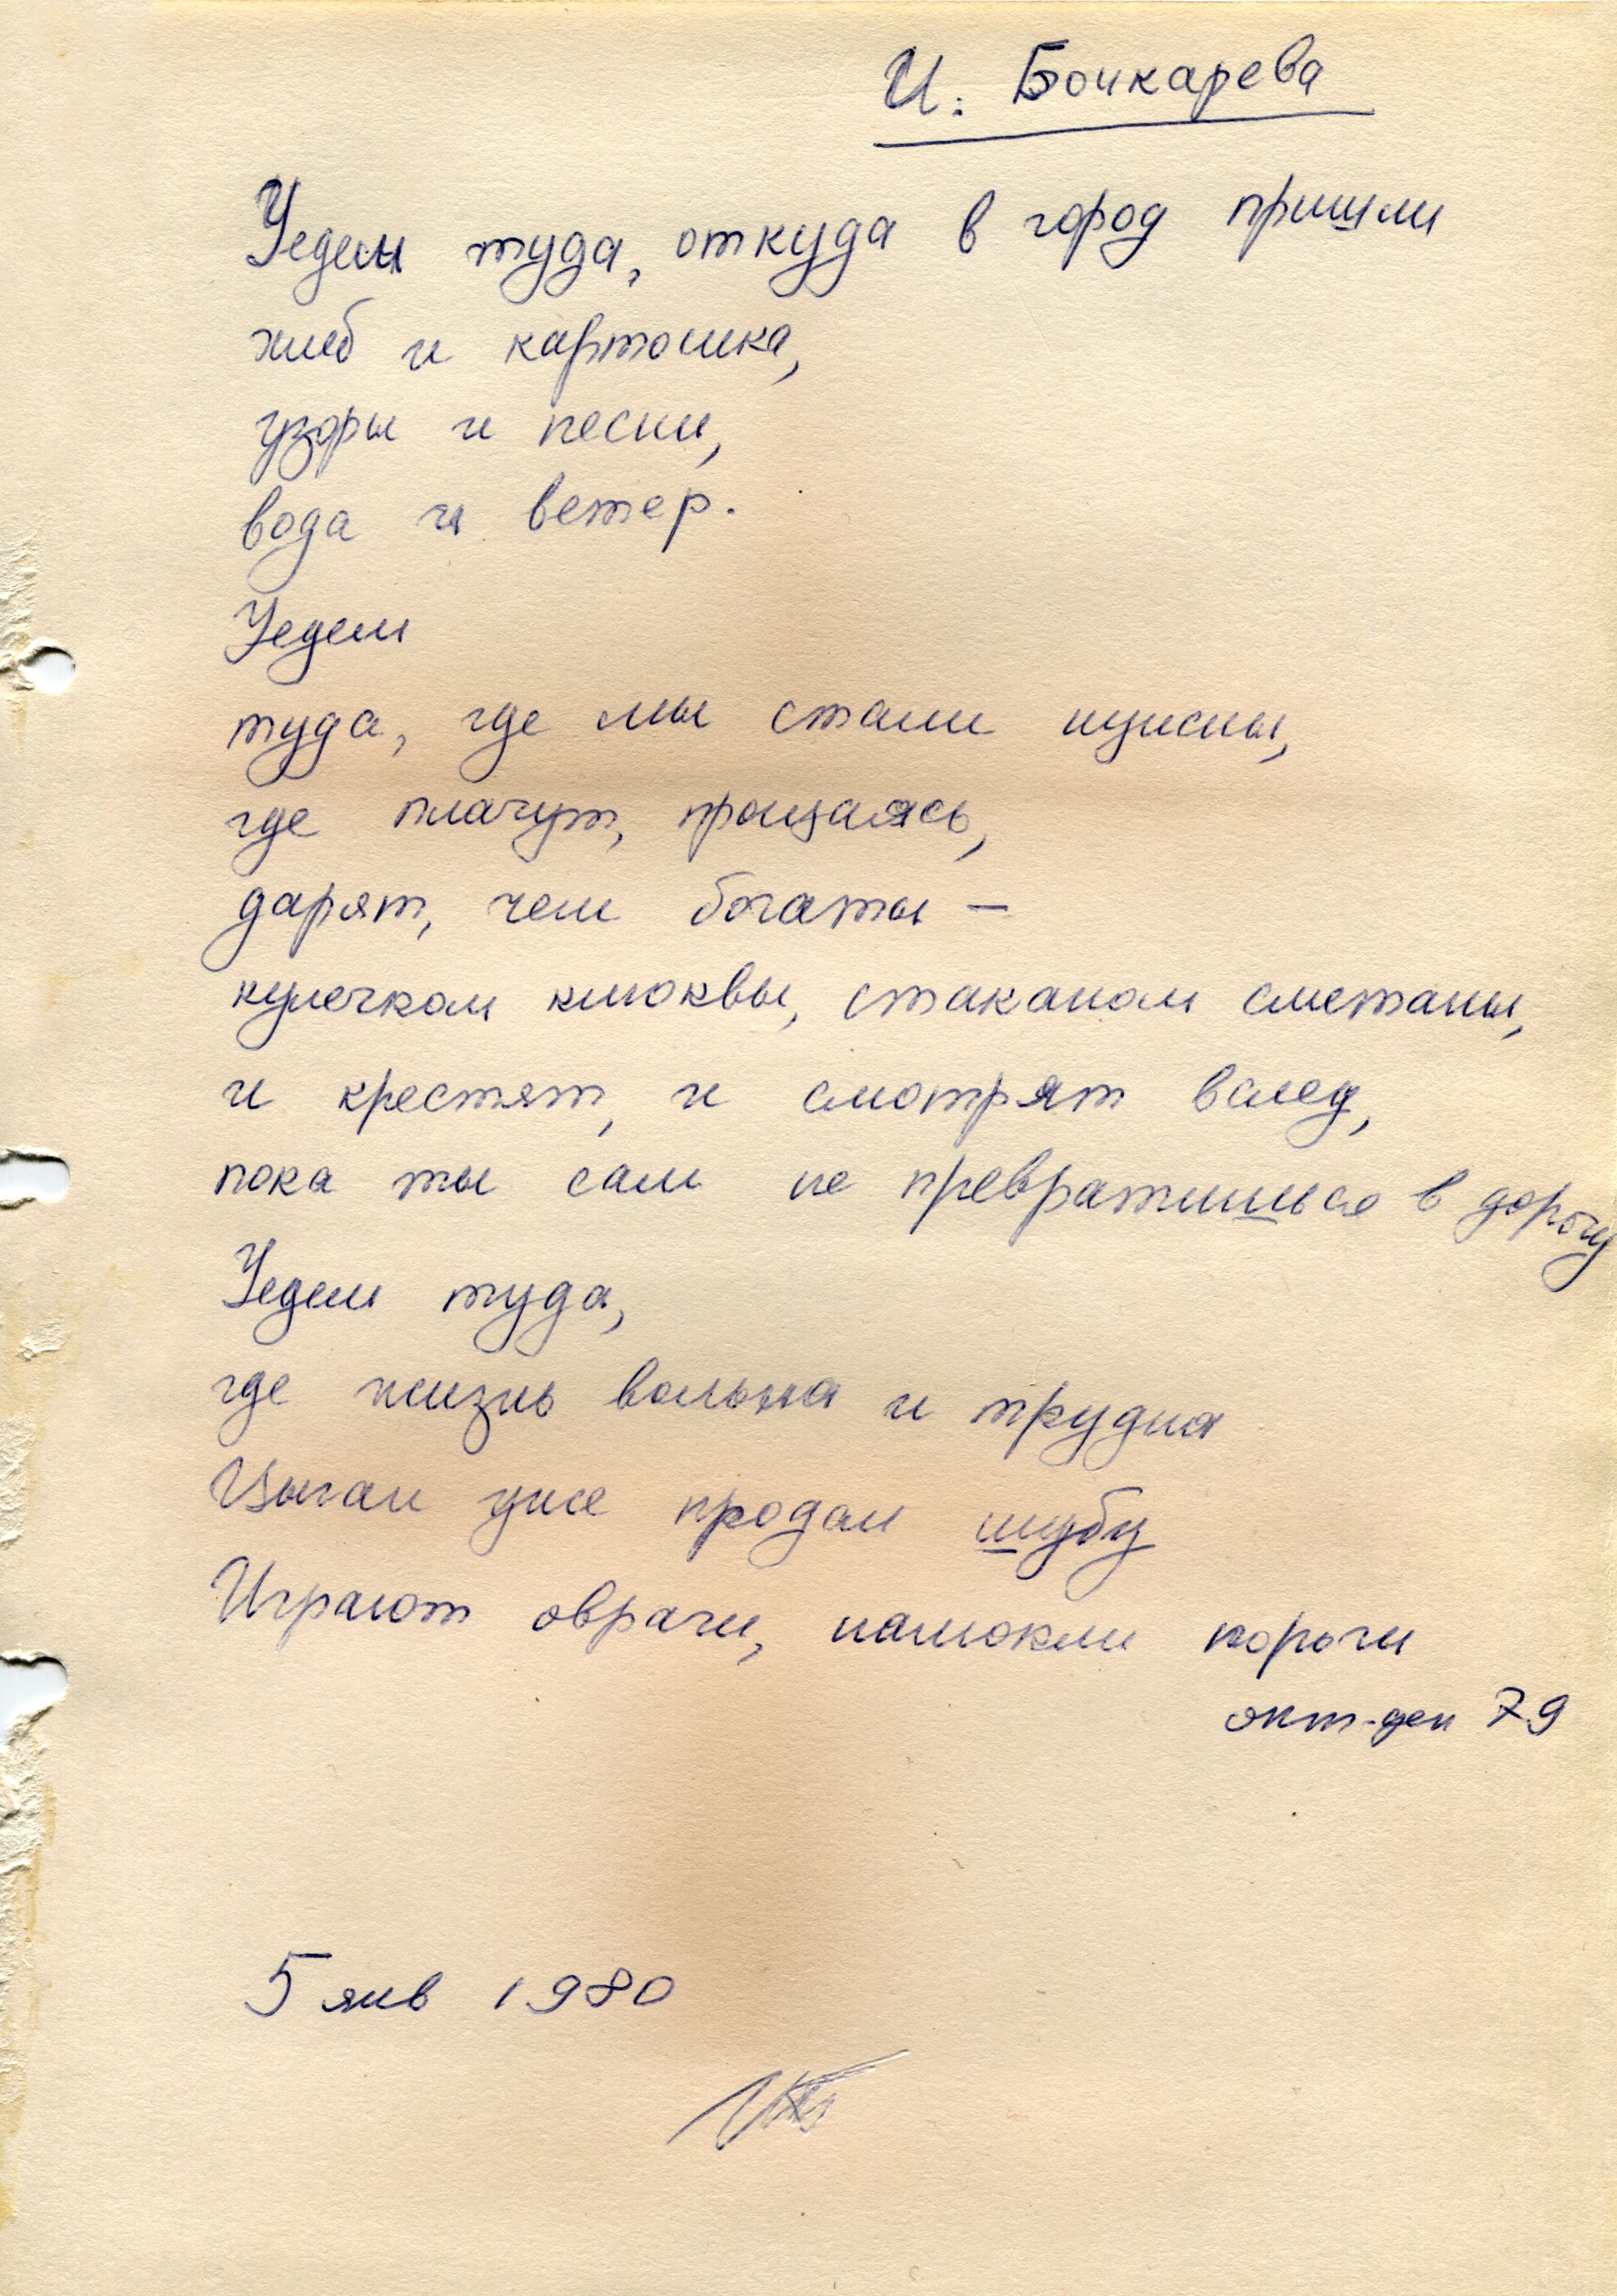 И. Бочкарева
Уедем туда, откуда в город пришли
хлеб и картошка,
узоры и песни,
вода и ветер.
Уедем
туда, где мы стали нужны,
где плачут, прощаясь,
дарят, чем богаты –
кулечком клюквы, стаканом сметаны,
и крестят, и смотрят вслед,
пока ты сам не превратишься в дорогу
Уедем туда,
где жизнь вольна и трудна
Цыган уже продал шубу
Играют овраги, намокли пороги
окт-дек 79
5 янв 1980